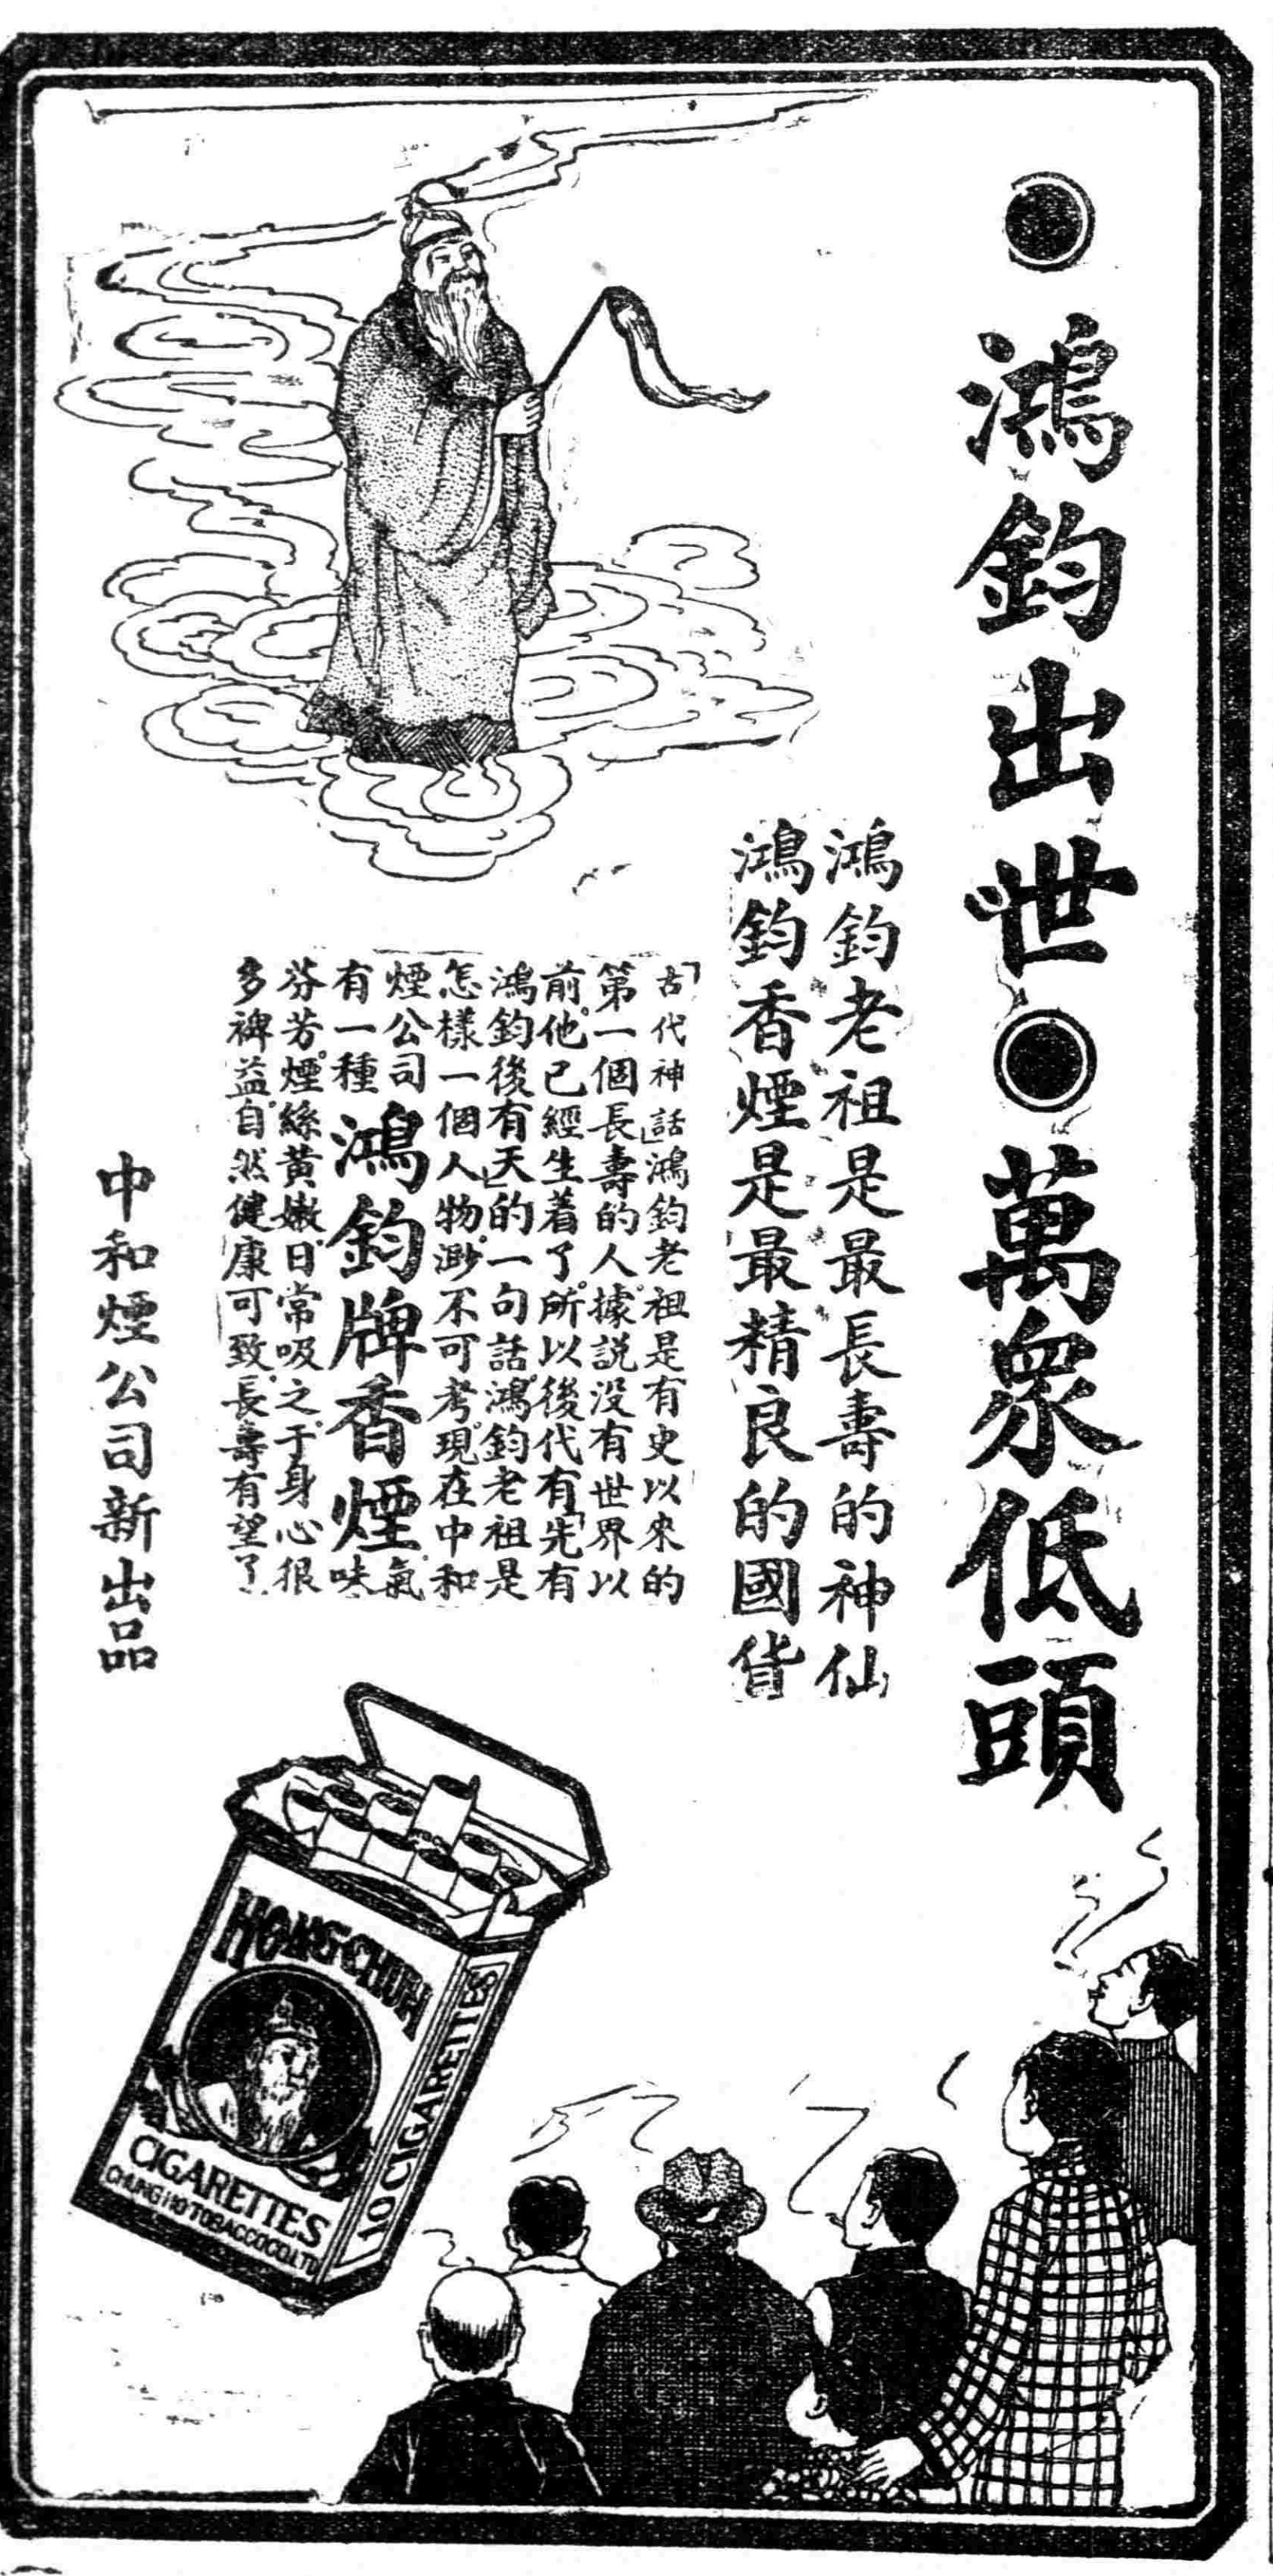 ●鴻鈞出世●萬衆低頭
鴻鈞老祖是最長壽的神仙
鴻鈞香煙是最精良的國貨
「古代神話」鴻鈞老祖是有史以來的
第一個長壽的人。據説没有世界以
前。他已經生着了。所以後代有「先有
鴻鈞後有天」的一句話。鴻鈞老祖是
怎樣一個人物。渺不可考。現在中和
煙公司
有一種鴻鈞牌香煙。氣味
芬芳。煙絲黃嫩。日常吸之。于身心很
多裨益。自然健康可致。長壽有望了
中和煙公司新出品
HONG CHUN
CIGARETTES
CHUNG HO TOBACCO CO LTD
10 CIGARETTES